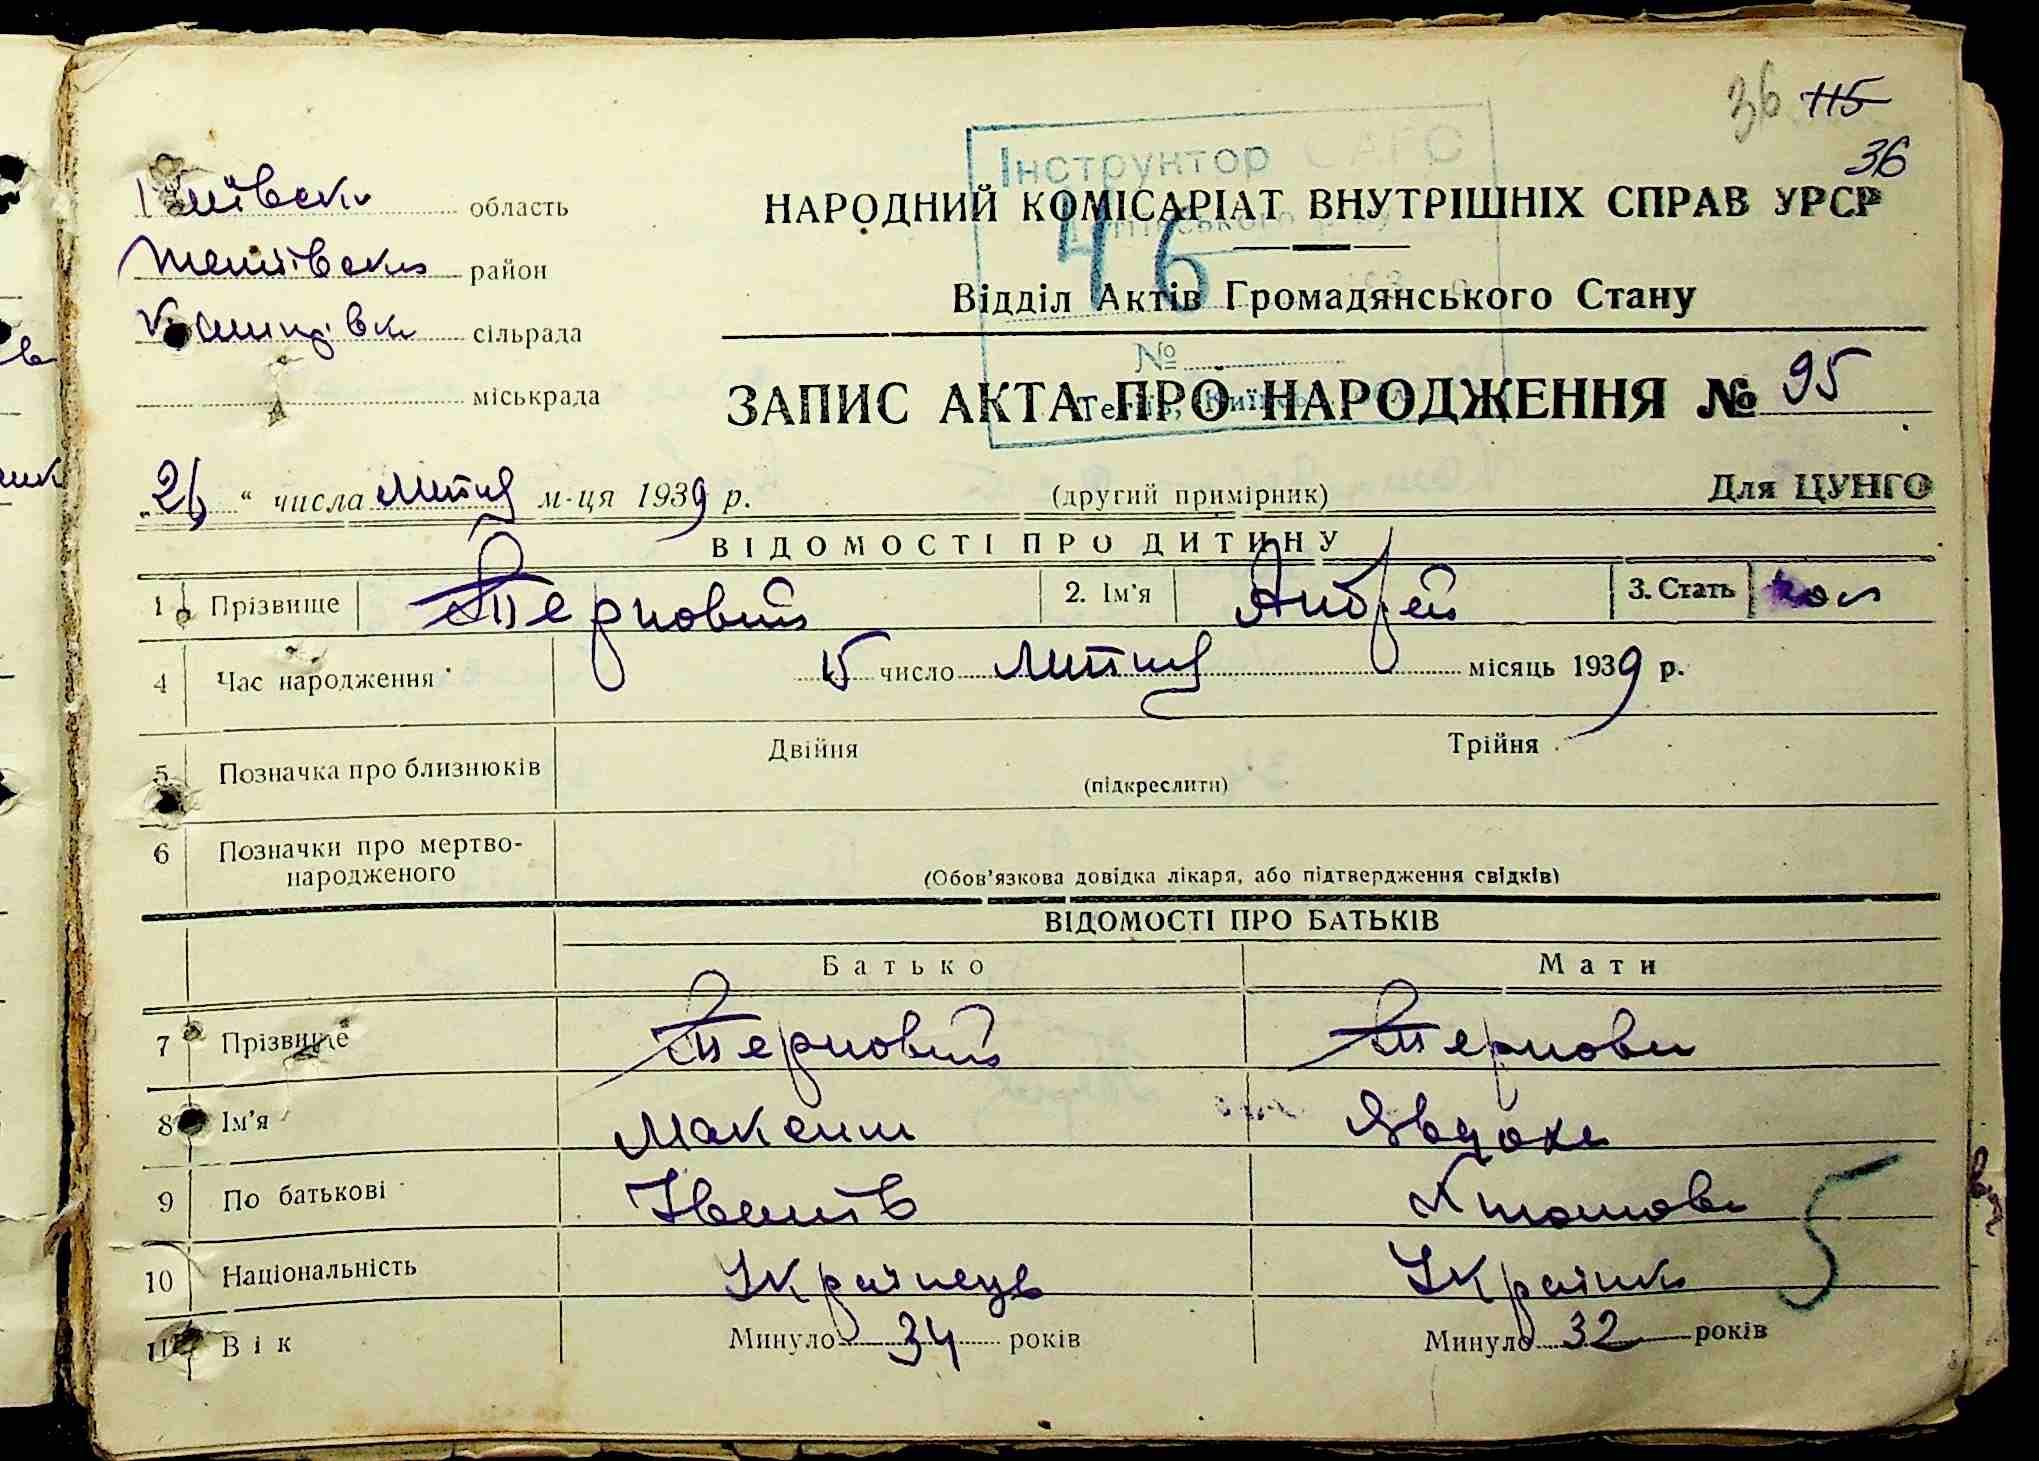 36 115
36
Київська область
Тетіївськ район
сільрада
міськрада
Інструктор ЗАГС
46
№
Тетіїв, Київськ
НАРОДНИЙ КОМІСАРІАТ ВНУТРІШНІХ СПРАВ УРСР
Відділ Актів Громадянського Стану
ЗАПИС АКТА ПРО НАРОДЖЕННЯ № 95
„26“ числа липця м-ця 1939 р. (другий примірник) Для ЦУНГО
ВІДОМОСТІ ПРО ДИТИНУ
1 Прізвище Терновий 2. Ім'я Андрей 3. Стать чол
4 Час народження 15 число липця місяць 1939 р.
5 Позначка про близнюків Двійня Трійня
(підкреслити)
6 Позначки про мертво-
народженого
(Обов'язкова довідка лікаря, або підтвердження свідків)
ВІДОМОСТІ ПРО БАТЬКІВ
Батько Мати
7 Прізвище Терновий Тернова
8 Ім'я Максим Явдоха
9 По батькові Іванів
5
10 Національність Українець Українка
11 Вік Минуло 34 років Минуло 32 років